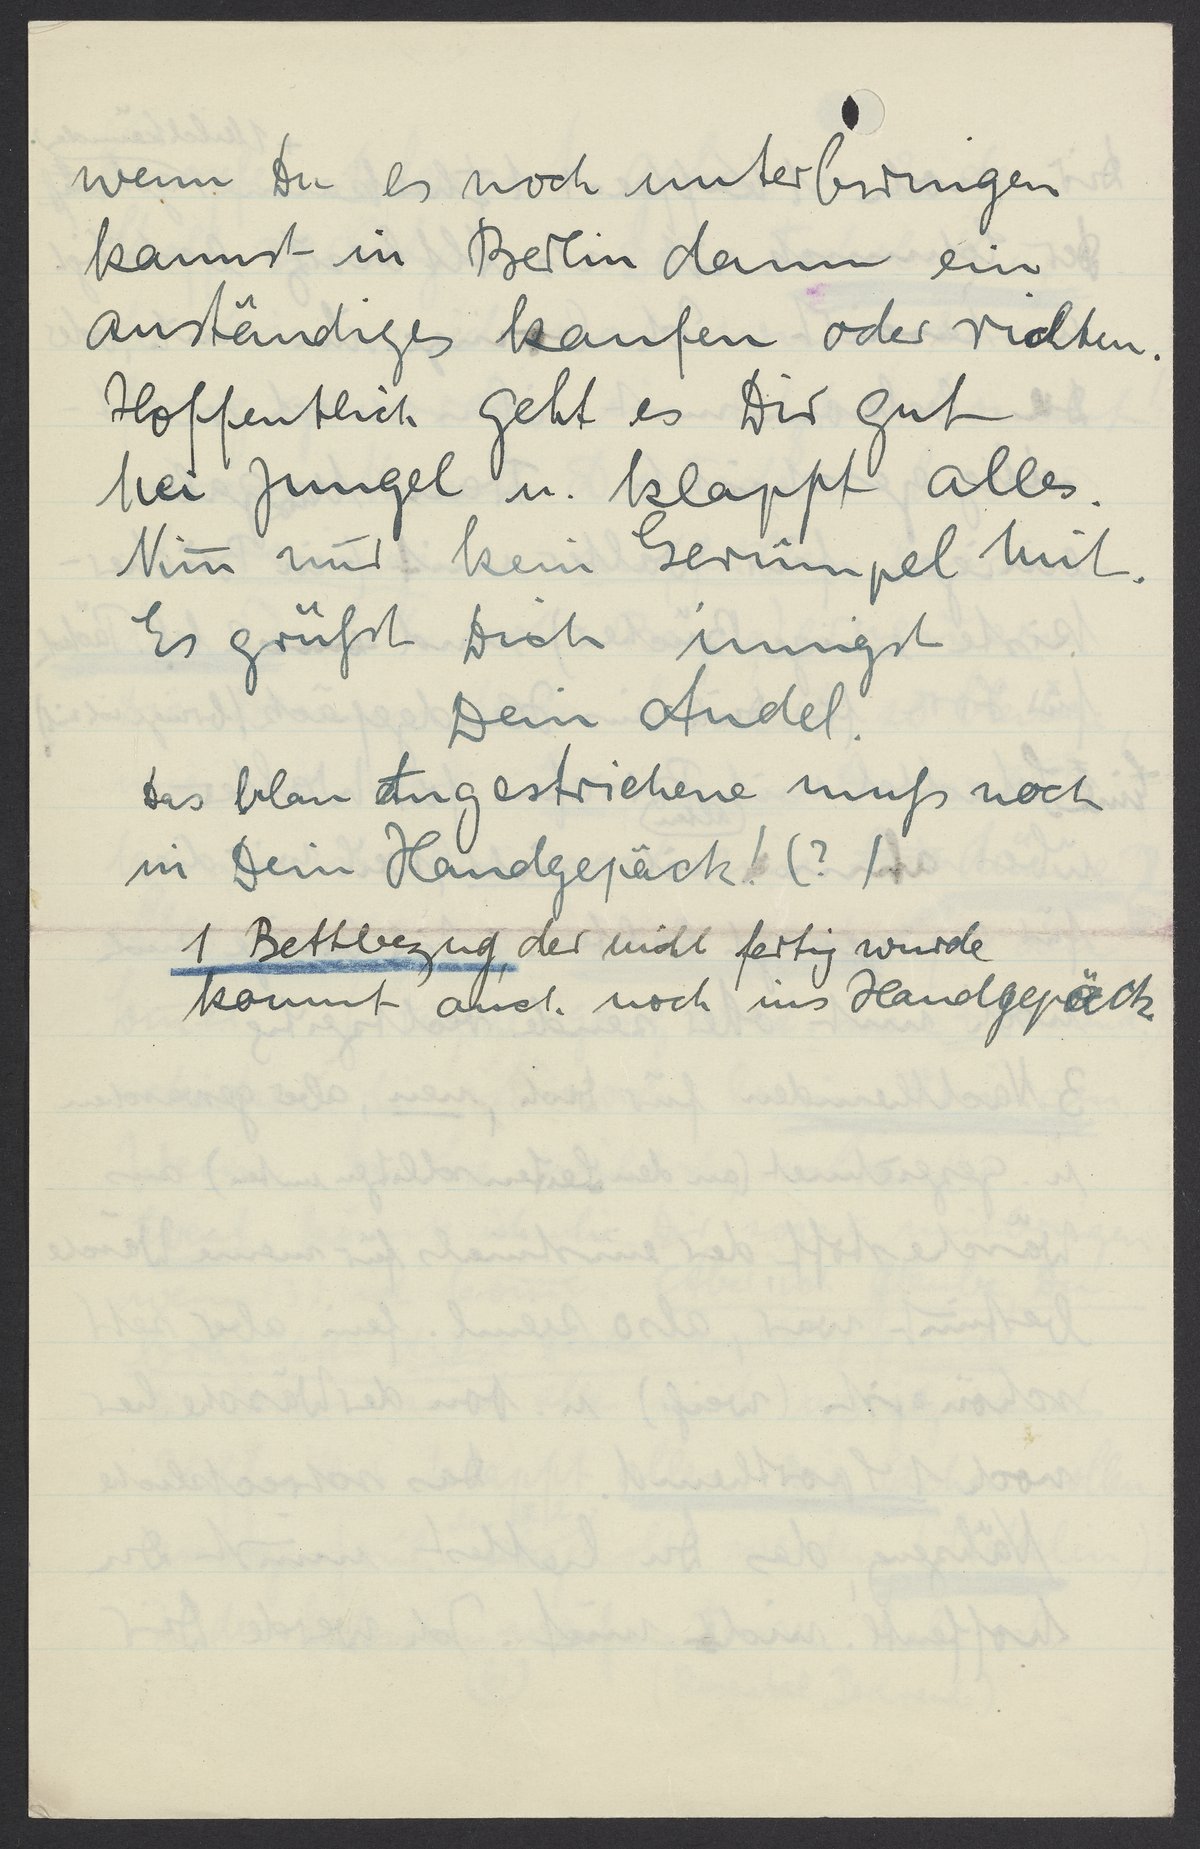 wenn Du es noch unterbringen
kannst in Berlin dann ein
anständiges kaufen oder richten.
Hoffentlich geht es Dir gut
bei Jungel u. klappt alles.
Nim̅ nur kein Gerümpel mit.
Es grüßt Dich innigst
Dein Andel.
Das blau Angestrichene muß noch
in Dein Handgepäck! (?)
1 Bettbezug, der nicht fertig wurde
kommt auch noch ins Handgepäck